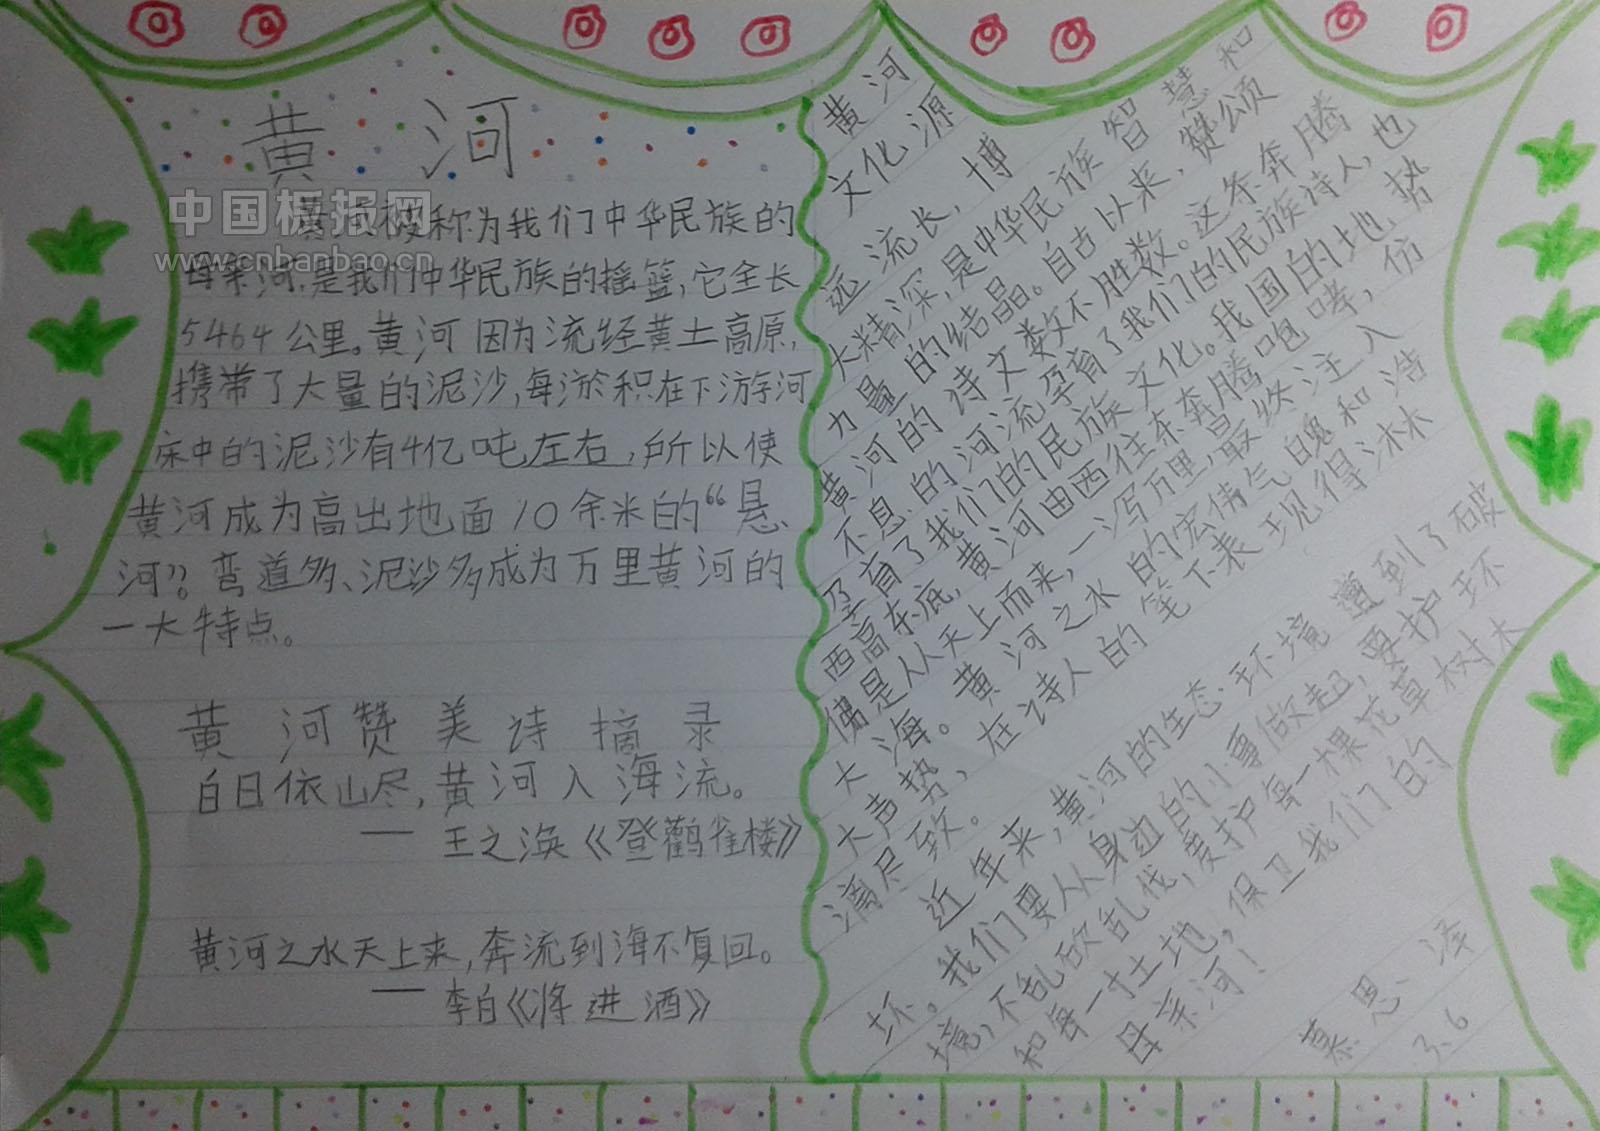 黄 河
中国板报网
www.cnbanbao.cn
黄河被称为我们中华民族的
母亲河,是我们中华民族的摇篮,它全长
5464公里。黄河因为流经黄土高原,
携带了大量的泥沙,每淤积在下游河
床中的泥沙有4亿吨左右,所以使
黄河成为高出地面10余米的“悬
河”。弯道多、泥沙多成为万里黄河的
一大特点。
黄河赞美诗摘录
白日依山尽,黄河入海流。
—— 王之涣《登鹳雀楼》
黄河之水天上来,奔流到海不复回。
—— 李白《将进酒》
黄河
文化源
远流长,博
大精深,是中华民族智慧和
力量的结晶。自古以来,赞颂
黄河的诗文数不胜数。这条奔腾
不息的河流孕育了我们的民族诗人,也
孕育了我们的民族文化。我国的地势
西高东底,黄河由西往东奔腾咆哮,仿
佛是从天上而来,一泻万里,最终注入
大海。黄河之水的宏伟气魄和浩
大声势,在诗人的笔下表现得淋
漓尽致。
近年来,黄河的生态环境遭到了破
坏。我们要从身边的小事做起,要护环
境,不乱砍乱伐,爱护每一棵花草树木
和每一寸土地,保卫我们的
母亲河!
慕思泽
3.6